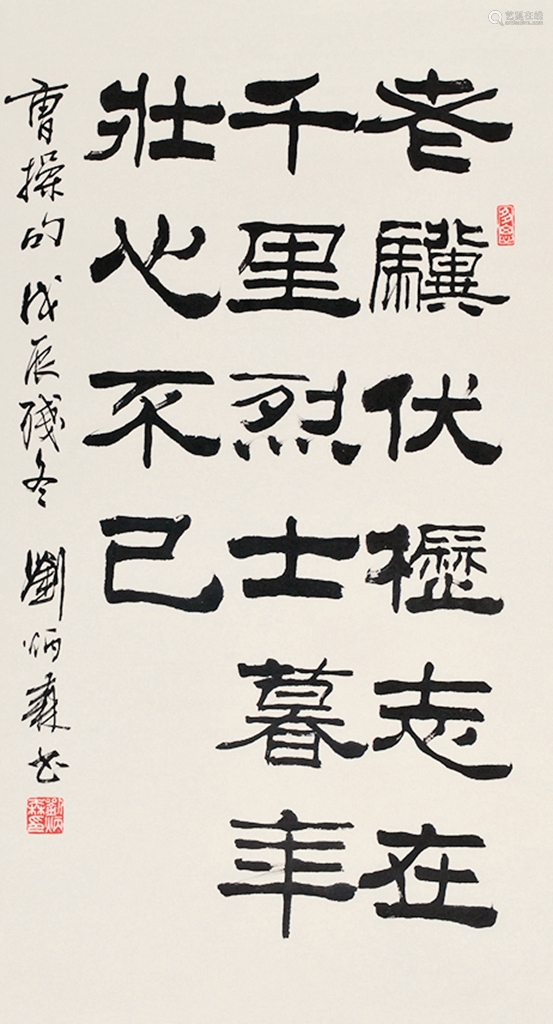 老驥伏櫪志在
千里烈士暮年
壯心不已
曹操句 戊辰残冬 劉炳森书
劉炳森印
艺狐在线